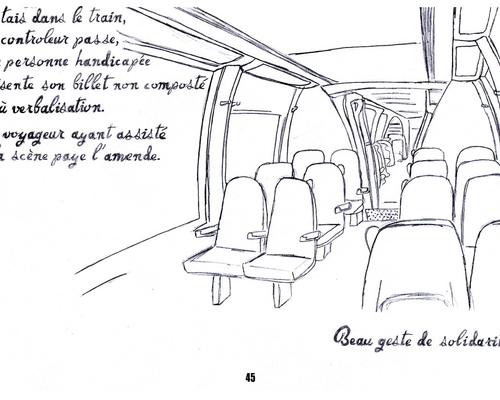 tais dans le train,
controleur passe,
personne handicapée
sente son billet non composté
ù verbalisation.
voyageur ayant assisté
scène paye l'amende.
Beau geste de solidari
45